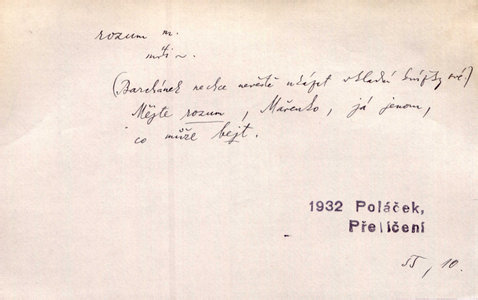 rozum m.
míti ~.
(Barchánek nechce nevěstě ukázat vkladní knížky své.)
Mějte rozum, Mářenko, já jenom,
co může bejt.
1932 Poláček,
Přelíčení
55, 10.